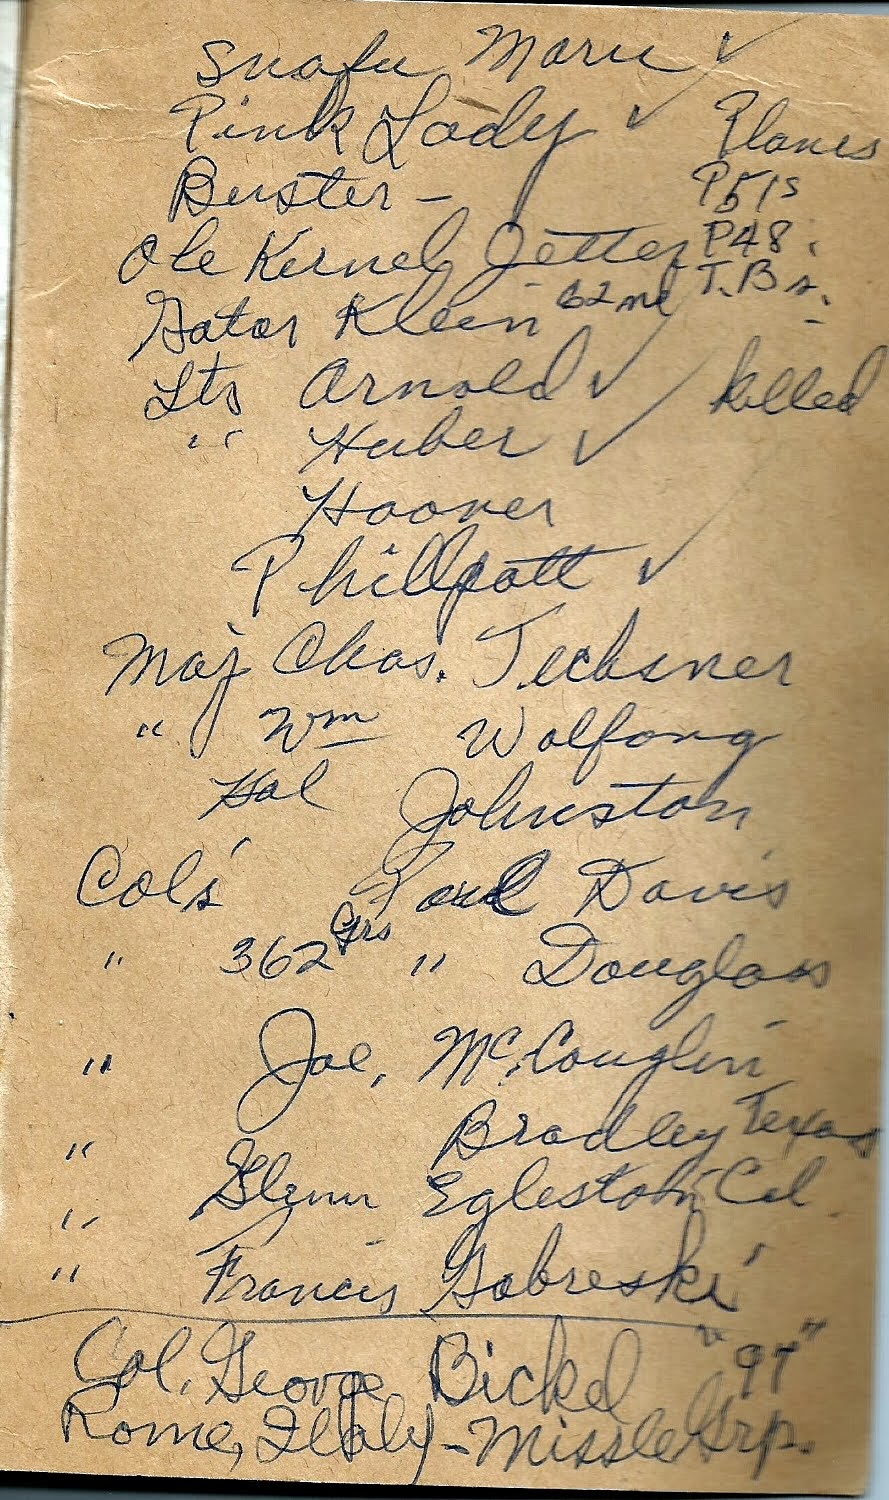 Snafu Maru ✓
Pink Lady ✓ Planes
Buster – P51s
Ole Kernel Jetter P48s
Gator Klein 62nd T.Bs.
Lts Arnold ✓ killed
" Huber ✓
Hoover
Phillpott ✓
Maj Chas. Teschner
" Wm Wolfong
Hal Johnston
Col's Paul Davis
" 362 Grs " Douglass
" Joe, McCouglin
" Bradley Texas
" Glenn Egleston Col
" Francis Gabreski
Col. George Bickel "97"
Rome, Italy – Missle Grp.